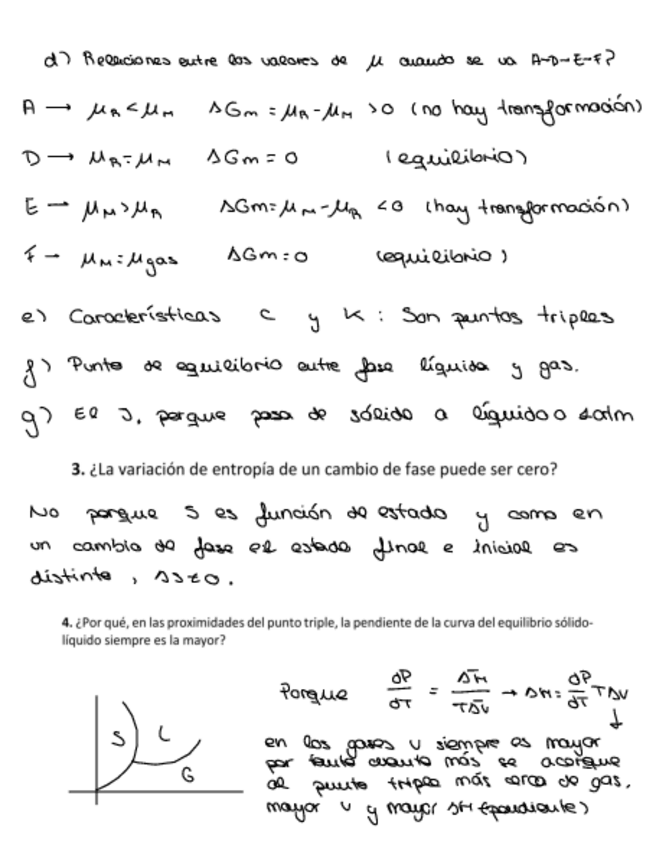 d) Relaciones entre los valores de μ cuando se va A-D-E-F?
A → μR < μM ΔGm = μR - μM > 0 (no hay transformación)
D → μR = μM ΔGm = 0 (equilibrio)
E → μM > μR ΔGm = μM - μR < 0 (hay transformación)
F - μM = μgas ΔGm = 0 (equilibrio)
e) Características C y K : Son puntos triples
f) Punto de equilibrio entre fase líquida y gas.
g) El J, porque pasa de sólido a líquido a 1 atm
3. ¿La variación de entropía de un cambio de fase puede ser cero?
No porque S es función de estado y como en
un cambio de fase el estado final e inicial es
distinto, ΔS≠0.
4. ¿Por qué, en las proximidades del punto triple, la pendiente de la curva del equilibrio sólido-
líquido siempre es la mayor?
Porque dP/dT = ΔH̄/TΔV̄ → ΔH = dP/dT TΔV
↓
S L
G
en los gases V siempre es mayor
por tanto cuanto más se acerque
al punto triple más cerca de gas.
mayor V y mayor ΔH (pendiente)